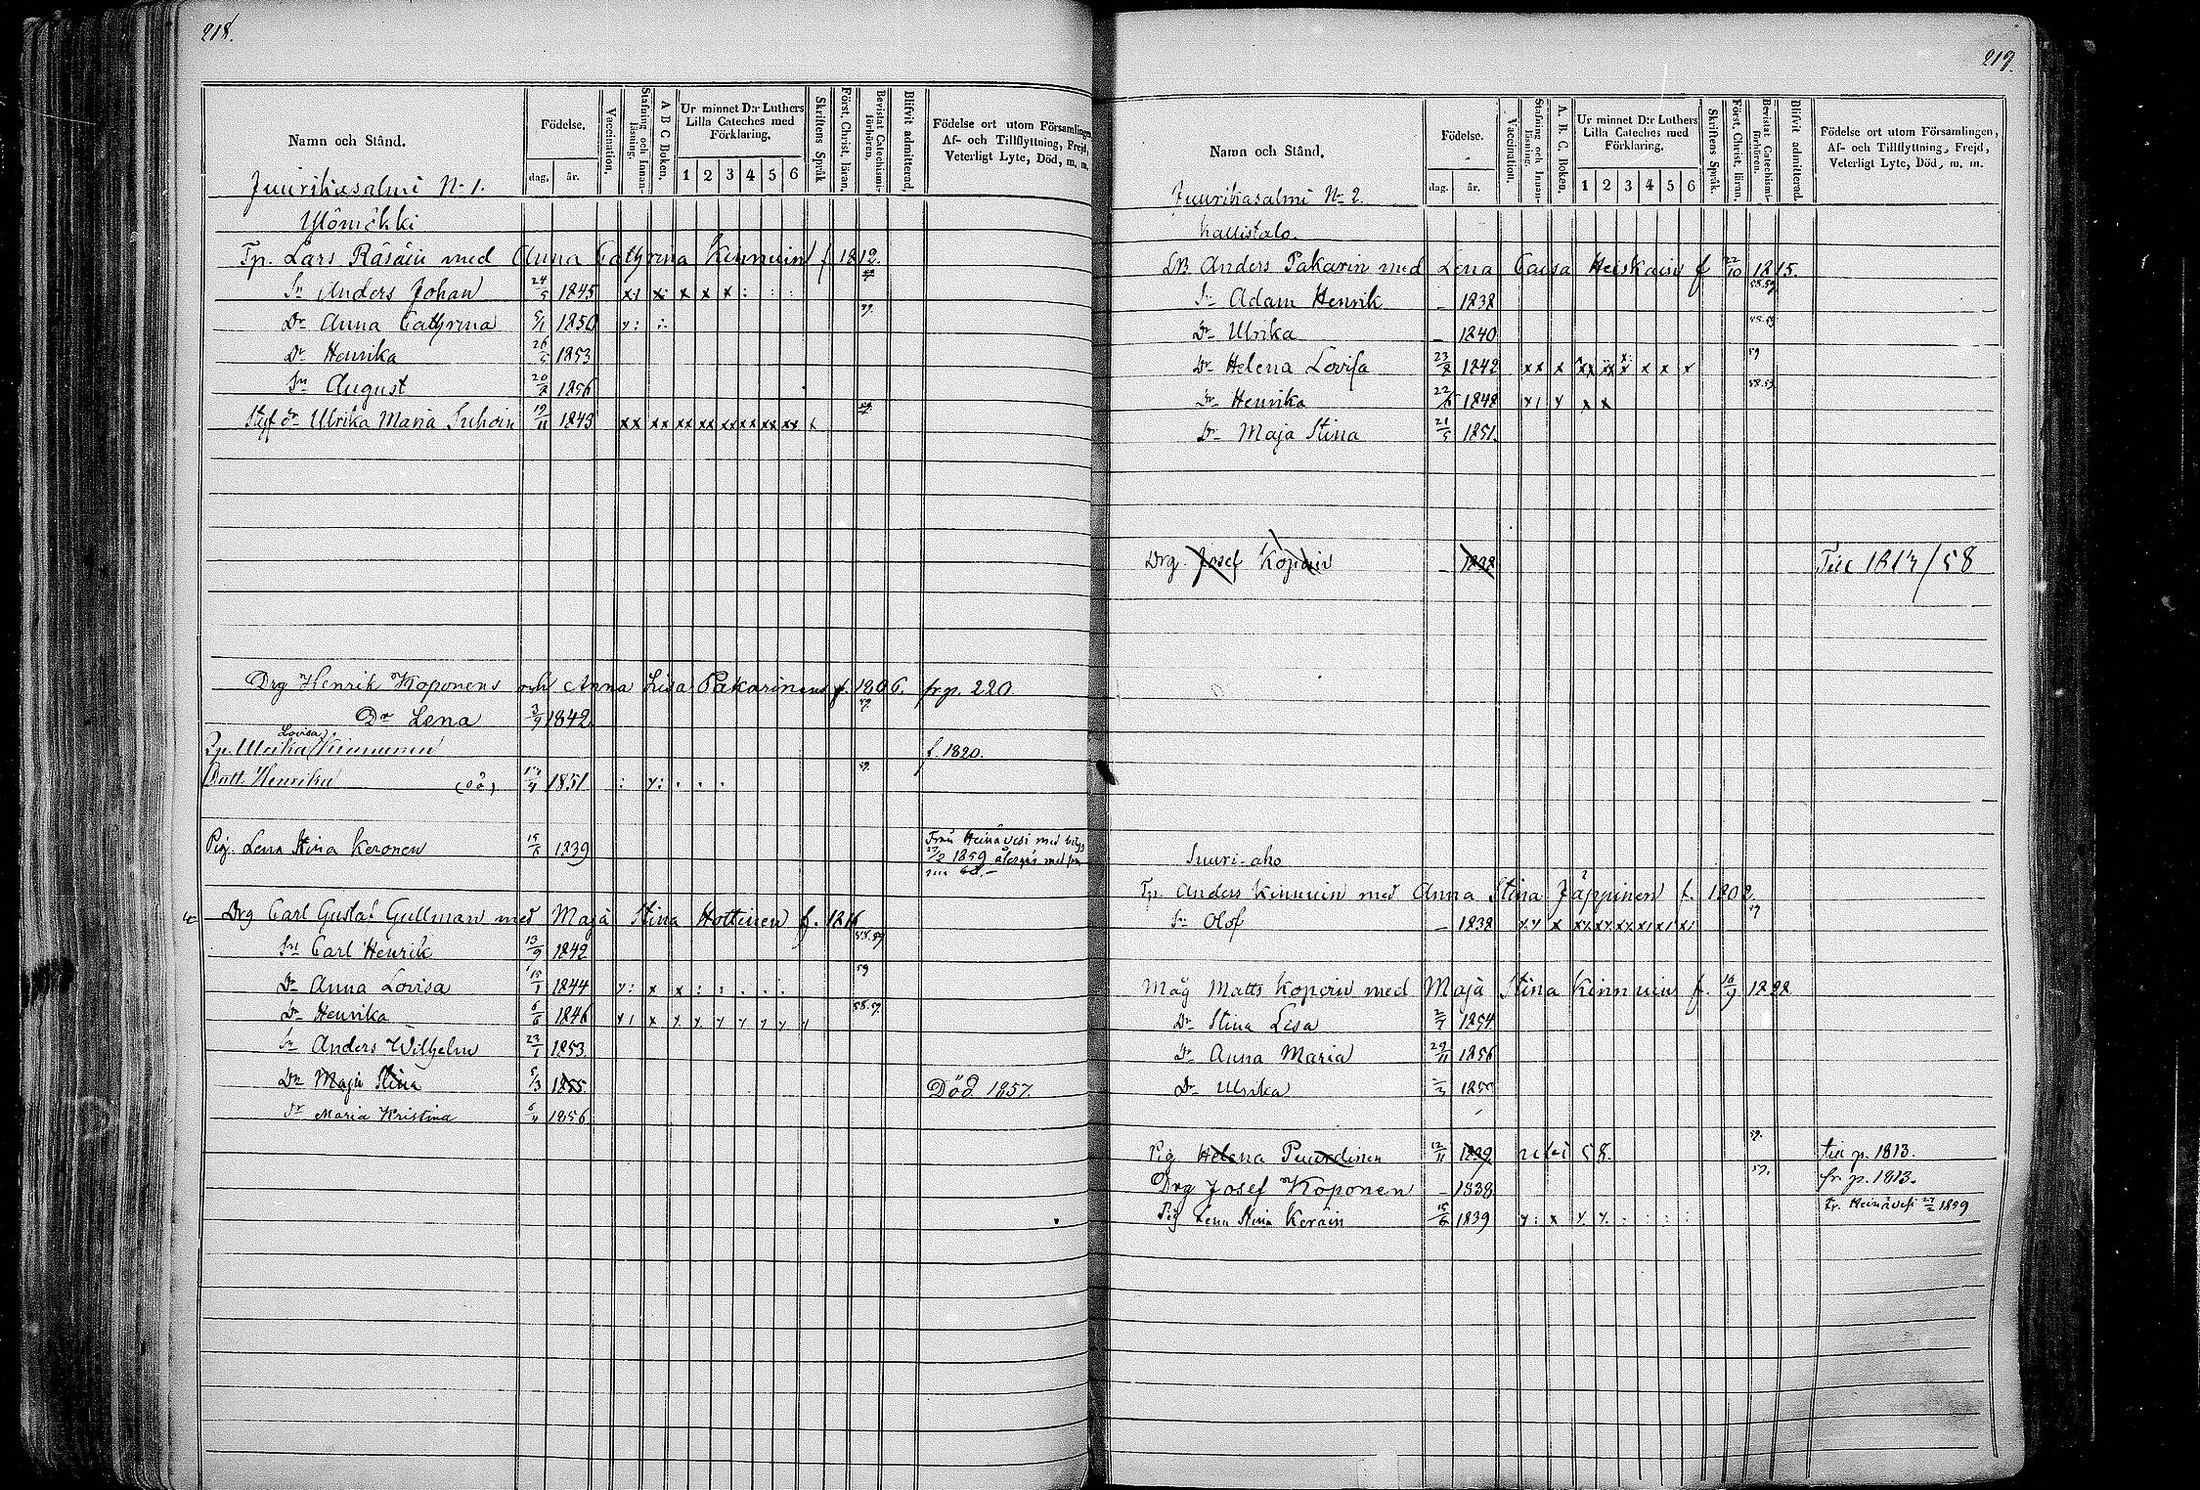 218.
Namn och Stånd.
Födelse.
dag.
år.
Vaccination.
Stafning och Innanläsning.
A B C Boken.
Ur minnet D:r Luthers
Lilla Cateches med
Förklaring.
1 2 3 4 5 6
Skriftens Språk
Först. Christ. läran.
Bevistat Catechismiförhören.
Blifvit admitterad.
Födelse ort utom Församlingen,
Af- och Tillflyttning, Frejd,
Veterligt Lyte, Död, m. m.
Juurikkasalmi N. 1.
Ylömäkki
Tp. Lars Räsäin med Anna Cathrina Kinnuin f 1812.
Sn Anders Johan 24/5 1845 x x x x x : : :
Dr Anna Cathrina 1850
Dr Henrika 26/5 1853
Sn August 1856
Styf dr Ulrika Maria Suhoin 19/11 1843 xx xx xx xx xx xx xx xx
Drg Henrik Koponens och Anna Lisa Pakarinens f. 1806. fr p. 220.
Dr Lena 3/9 1842
Lovisa
Ulrika Kinnunen f. 1820.
Dott. Henrika (oä) 1851
Pig. Lena Stina Keronen 15/6 1839
Från Heinävesi med
27/2 1859 återgås med
Drg Carl Gustaf Gullman med Maja Stina Hottinen f. 1816
58.59
Sn Carl Henrik 13/9 1842
59
Dr Anna Lovisa 15/1 1844
58.59
Dr Henrika 6/6 1846
Sn Anders Wilhelm 23/1 1853
Dr Maja Stina 5/3 1855 Död 1857.
Dr Maria Kristina 6/4 1856
219.
Namn och Stånd.
Födelse.
dag.
år.
Vaccination.
Stafning och Innanläsning.
A. B. C. Boken.
Ur minnet D:r Luthers
Lilla Cateches med
Förklaring.
1 2 3 4 5 6
Skriftens Språk.
Först. Christ. läran.
Bevistat Catechismiförhören.
Blifvit admitterad.
Födelse ort utom Församlingen,
Af- och Tillflyttning, Frejd,
Veterligt Lyte, Död, m. m.
Juurikkasalmi N. 2.
Kallistalo.
Anders Pakarin med Lena Caisa Heiskain f 22/10 1815.
58.59
Sn Adam Henrik – 1838
Dr Ulrika – 1840
59
Dr Helena Lovisa 1842 xx x xx xx x x x x
58.59
Dr Henrika 1848
Dr Maja Stina 21/5 1851.
Drg. Josef Kopoin – 1838 Till 1813/58
Suuri-aho
Tp. Anders Kinnuin med Anna Stina Jäppinen f. 1802.
59
Sn Olof – 1838
Måg Matts Kopoin med Maja Stina Kinnuin f. 1828
Dr Stina Lisa 1854
Dr Anna Maria 29/11 1856
Dr Ulrika
59.
Pig Helena Puurdinen 12/11 1839 58. till p. 1813.
Drg Josef Koponen – 1838 fr p. 1813.
Pig Lena Stina Keräin 15/6 1839 fr. Heinävesi 27/2 1859